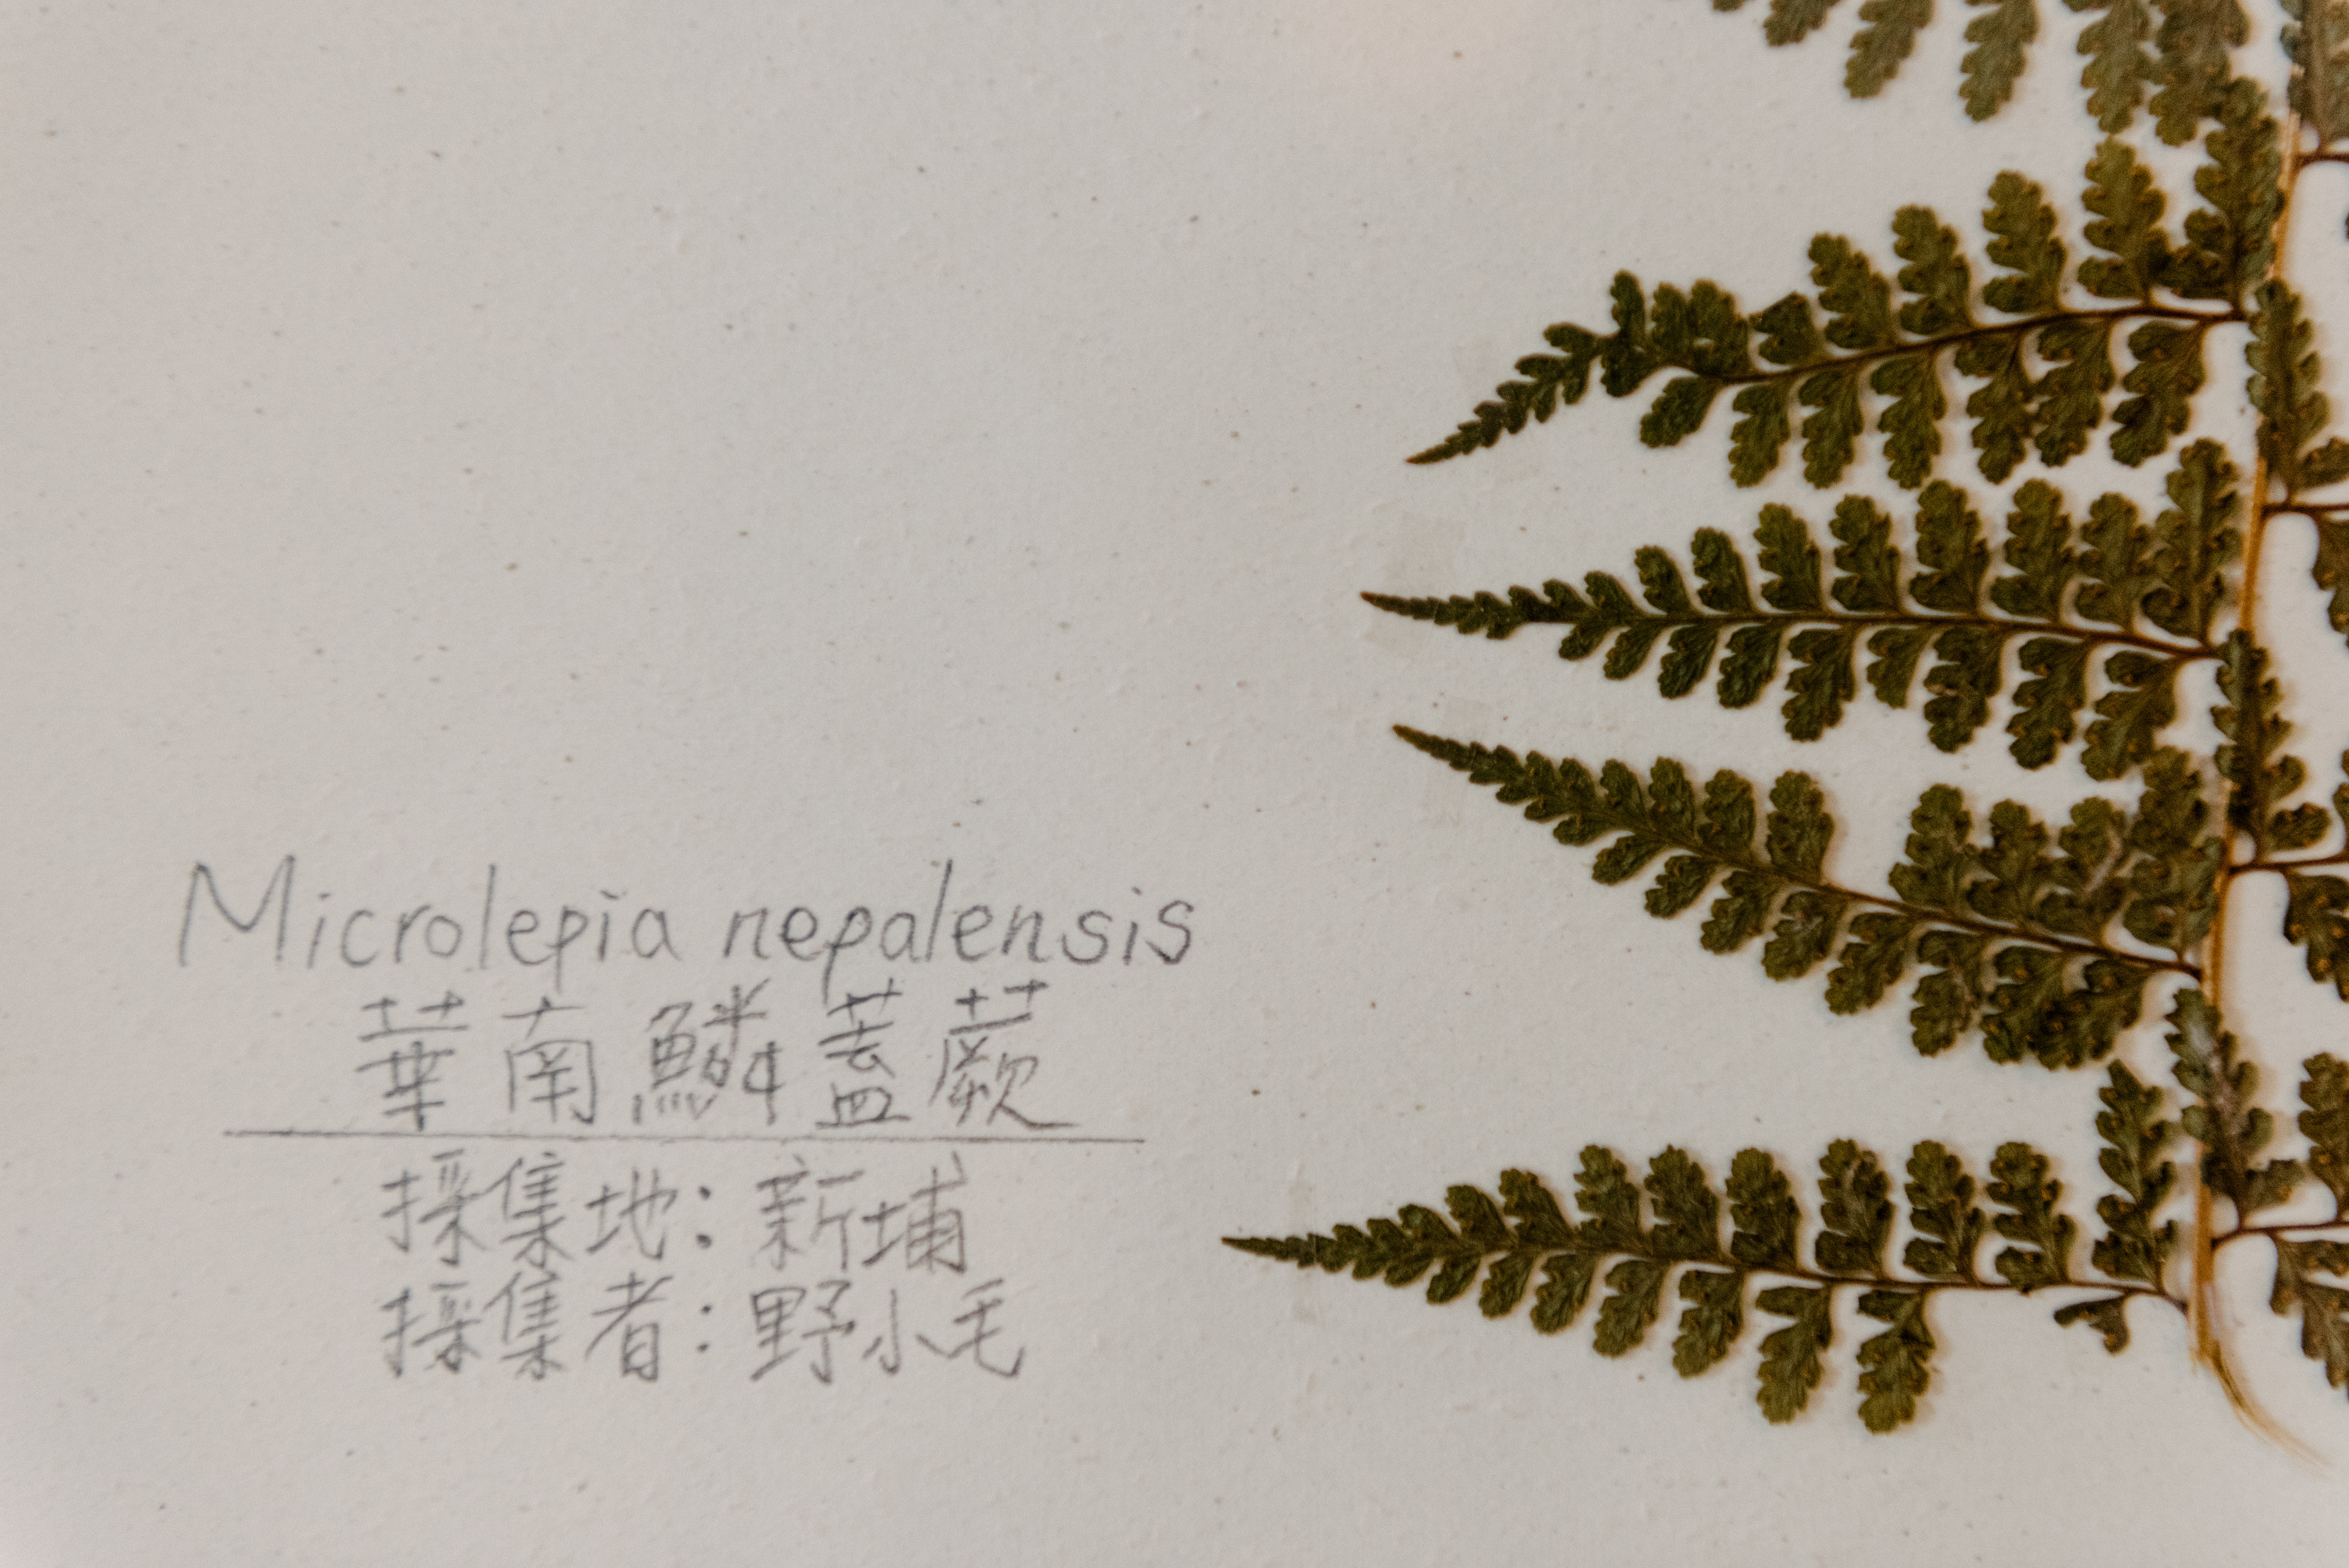 Microlepia nepalensis
華南鱗蓋蕨
採集地：新埔
採集者：野小毛